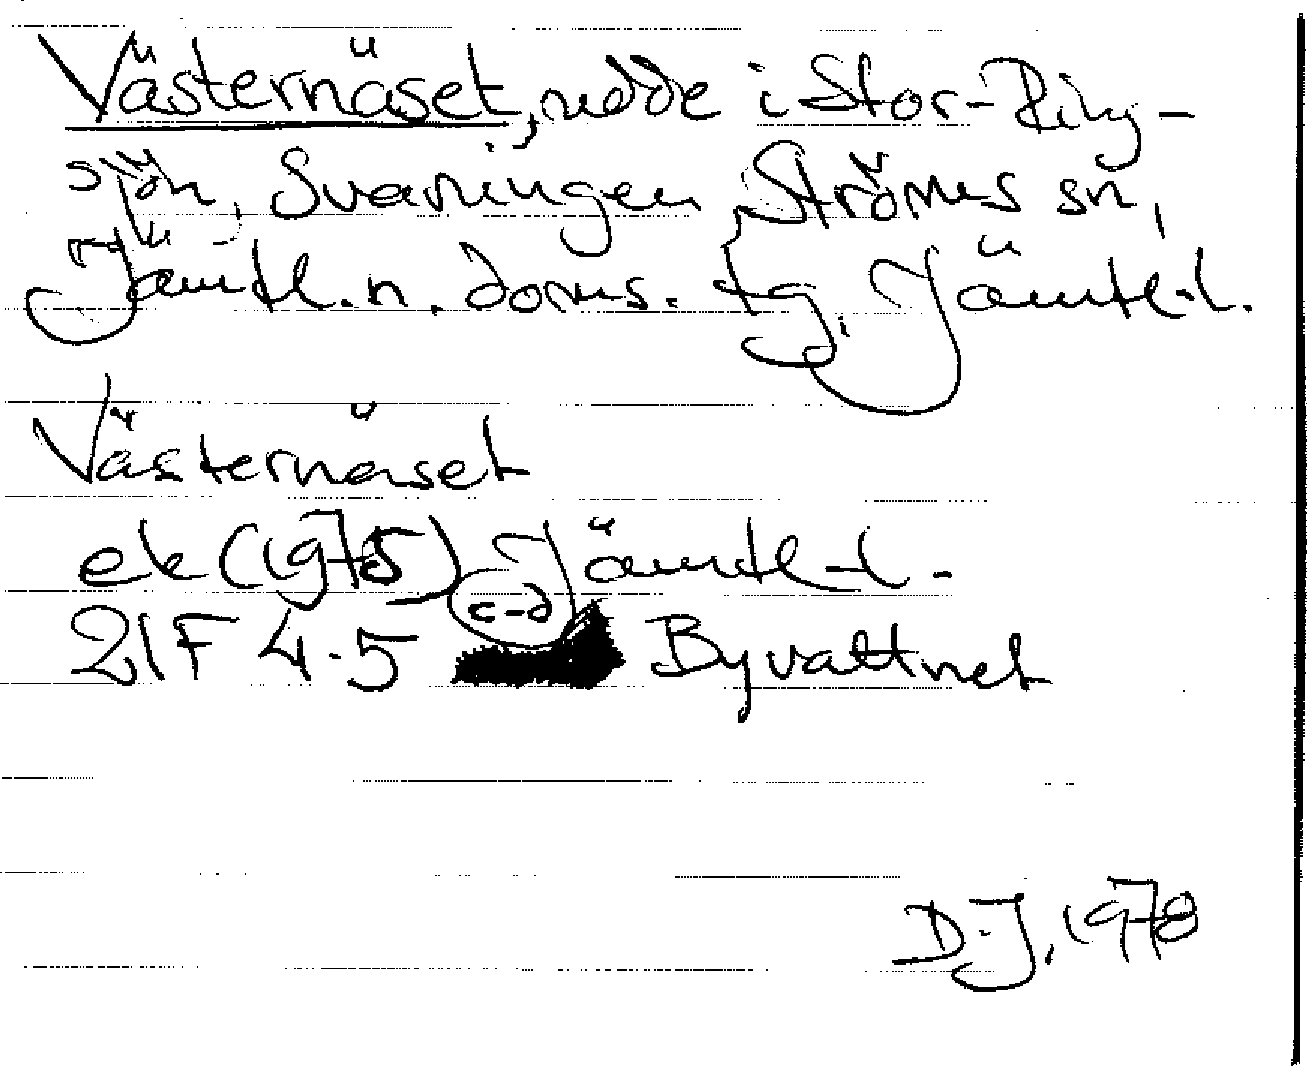 Västernäset, udde i Stor-Ring-
sjön, Svaningen Ströms sn,
Jämtl. n. doms. tg, Jämtl. l.
Västernäset
ek (1975) Jämtl. l.
21F 4-5 c-d Byvattnet
D.J. 1978